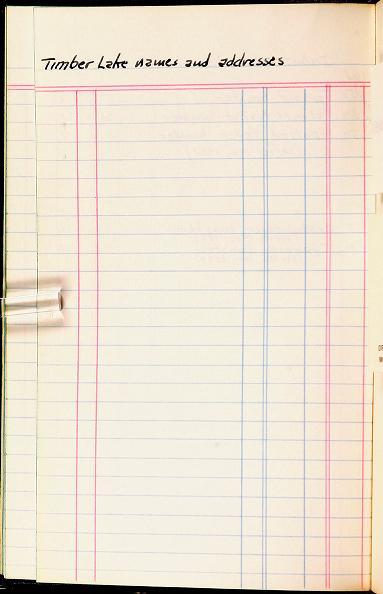 Timber Lake names and addresses